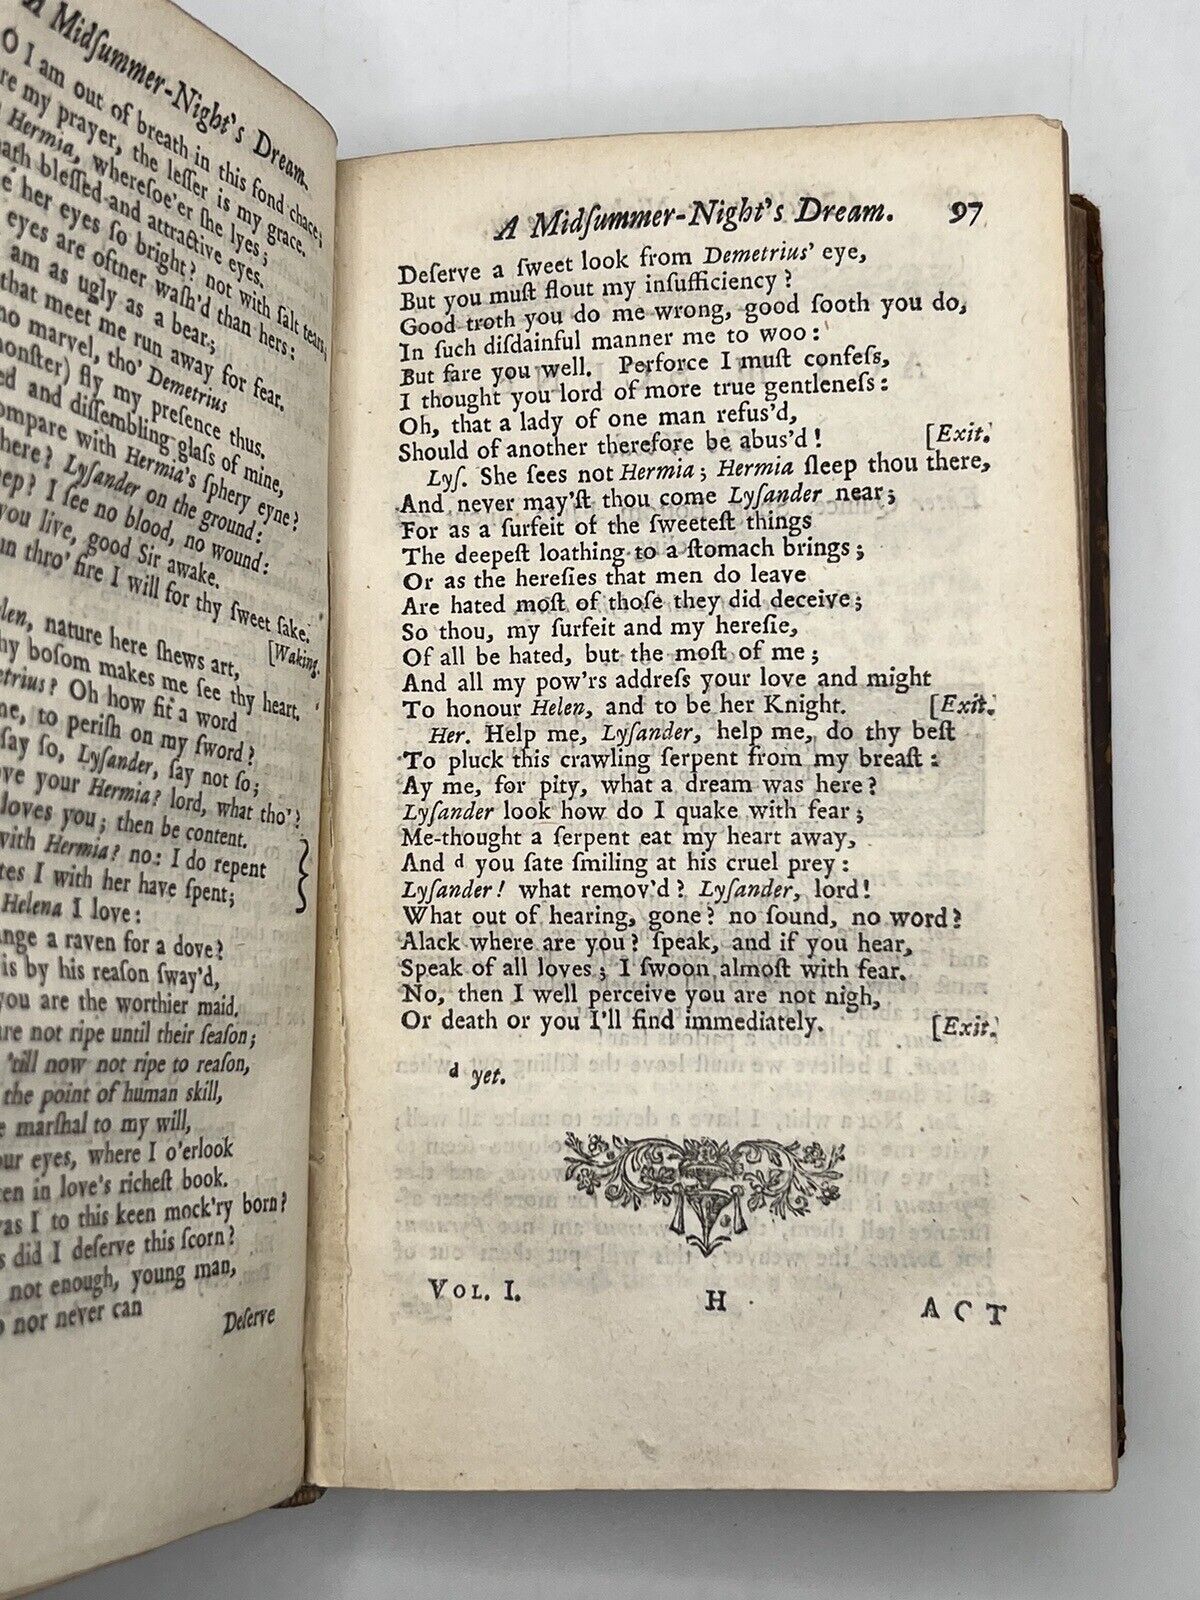 A Midſummer-Night's Dream.
O I am out of breath in this fond chace;
re my prayer, the leſſer is my grace.
Hermia, whereſoe'er ſhe lyes;
ath bleſſed and attractive eyes.
her eyes ſo bright? not with ſalt tears,
eyes are oftner waſh'd than hers:
am as ugly as a bear;
that meet me run away for fear.
no marvel, tho' Demetrius
monſter) fly my preſence thus.
ed and diſſembling glaſs of mine,
ompare with Hermia's ſphery eyne?
here? Lyſander on the ground:
eep? I ſee no blood, no wound:
you live, good Sir awake.
un thro' fire I will for thy ſweet ſake.
[Waking.
elen, nature here ſhews art,
hy boſom makes me ſee thy heart.
etrius? Oh how fit a word
me, to periſh on my ſword?
ſay ſo, Lyſander, ſay not ſo;
ove your Hermia? lord, what tho'?
loves you; then be content.
with Hermia? no: I do repent
tes I with her have ſpent;
Helena I love:
ange a raven for a dove?
is by his reaſon ſway'd,
you are the worthier maid.
are not ripe until their ſeaſon;
'till now not ripe to reaſon,
the point of human skill,
marſhal to my will,
our eyes, where I o'erlook
ten in love's richeſt book.
was I to this keen mock'ry born?
s did I deſerve this ſcorn?
not enough, young man,
nor never can
Deſerve
A Midſummer-Night's Dream. 97
Deſerve a ſweet look from Demetrius' eye,
But you muſt flout my inſufficiency?
Good troth you do me wrong, good ſooth you do,
In ſuch diſdainful manner me to woo:
But fare you well. Perforce I muſt confeſs,
I thought you lord of more true gentleneſs:
Oh, that a lady of one man refus'd,
Should of another therefore be abus'd! [Exit.
Lyſ. She ſees not Hermia; Hermia ſleep thou there,
And never may'ſt thou come Lyſander near;
For as a ſurfeit of the ſweeteſt things
The deepeſt loathing to a ſtomach brings;
Or as the hereſies that men do leave
Are hated moſt of thoſe they did deceive;
So thou, my ſurfeit and my hereſie,
Of all be hated, but the moſt of me;
And all my pow'rs addreſs your love and might
To honour Helen, and to be her Knight. [Exit.
Her. Help me, Lyſander, help me, do thy beſt
To pluck this crawling ſerpent from my breaſt:
Ay me, for pity, what a dream was here?
Lyſander look how do I quake with fear;
Me-thought a ſerpent eat my heart away,
And d you ſate ſmiling at his cruel prey:
Lyſander! what remov'd? Lyſander, lord!
What out of hearing, gone? no ſound, no word?
Alack where are you? ſpeak, and if you hear,
Speak of all loves; I ſwoon almoſt with fear.
No, then I well perceive you are not nigh,
Or death or you I'll find immediately. [Exit.
d yet.
VOL. I. H ACT